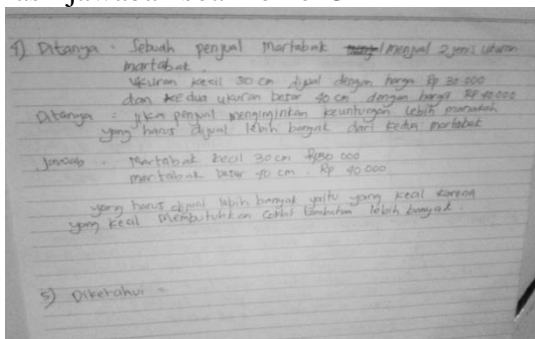 4) Ditanya : Sebuah penjual martabak menjual 2 jenis ukuran
martabak.
ukuran kecil 30 cm dijual dengan harga Rp 30 000
dan kedua ukuran besar 40 cm dengan harga Rp 40.000
Ditanya = jika penjual menginginkan keuntungan lebih manakah
yang harus dijual lebih banyak dari kedua martabak
Jawab : Martabak kecil 30 cm Rp 30 000
martabak besar 40 cm . Rp 40 000
yang harus dijual lebih banyak yaitu yang kecil karena
yang kecil membutuhkan lebih banyak.
5) Diketahui =